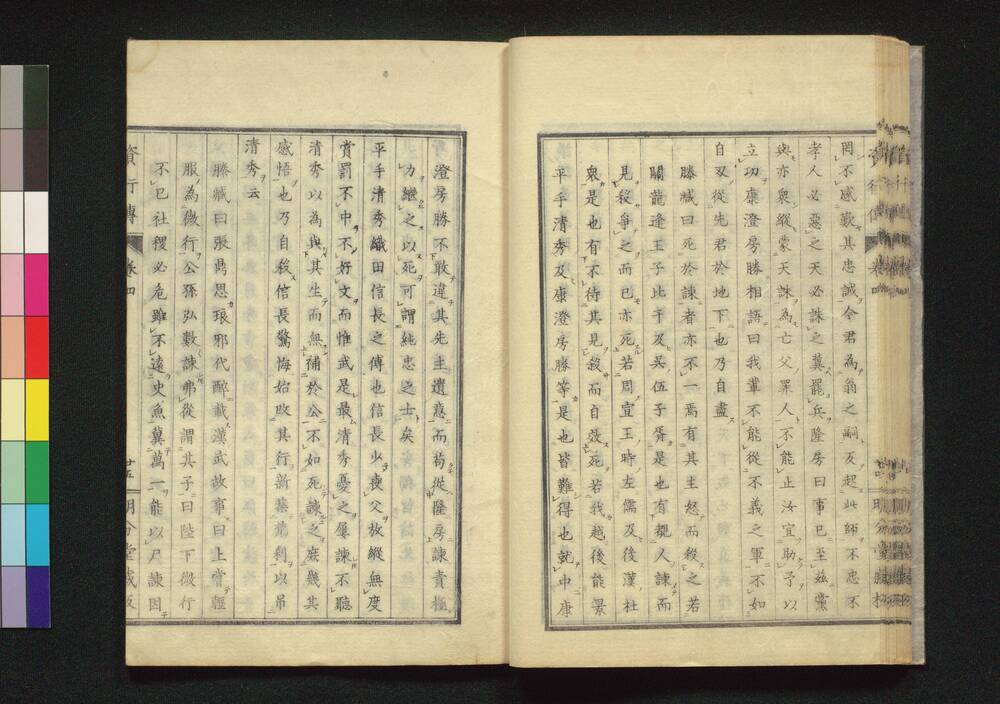 罔不感歎其忠誠今君為翁之嗣反起此師不忠不
孝人必惡之天必誅之冀罷兵隆房曰事已至茲黨
與亦衆縱蒙天誅為亡父罪人不能止汝宜助予以
立功康澄房勝相語曰我輩不能從不義之軍不如
自刄從先君於地下也乃自盡
滕臧曰死於諫者亦不一焉有其主怒而殺之若
關龍逢王子比干及吳伍子胥是也有覩人諫而
見殺爭之而已亦死若周宣王時左儒及後漢杜
衆是也有不待其見殺而自效死若我越後能景
平手清秀及康澄房勝等是也皆難得也就中康
澄房勝不敢違其先主遺意而苟從隆房諫責極
力繼之以死可謂純忠之士矣
平手清秀織田信長之傅也信長少喪父放縱無度
賞罰不中不好文而惟武是最清秀憂之屢諫不聽
清秀以為與其生而無補於公不如死諫之庶幾其
感悟也乃自殺信長驚悔始改其行新築梵刹以吊
清秀云
滕臧曰張鼎思琅邪代醉載漢武故事曰上嘗輕
服為微行公孫弘數諫弗從謂其子曰陛下微行
不已社稷必危雖不遠史魚冀萬一能以尸諫因
資行傳 卷四 廿五 明分堂藏板